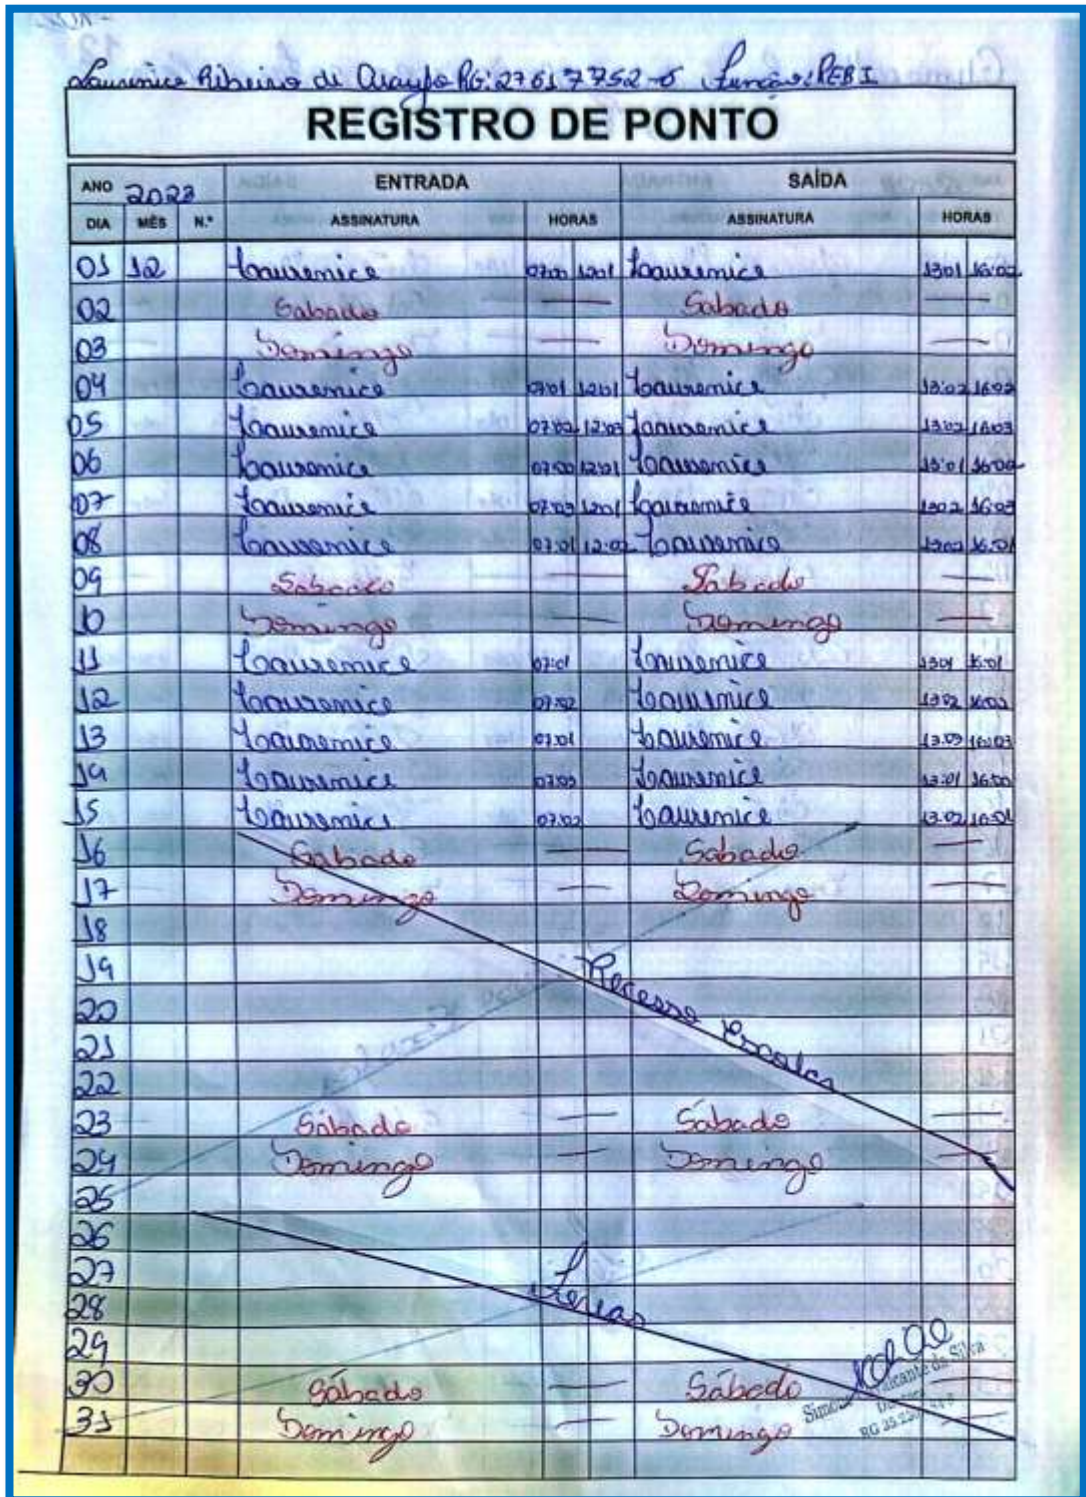 Laurenice Ribeiro de Araujo RG: 27617752-6 Função: PEB I
REGISTRO DE PONTO
ANO 2023 ENTRADA SAÍDA
DIA MÊS N.º ASSINATURA HORAS ASSINATURA HORAS
01 12 Laurenice 07:00 12:01 Laurenice 13:01 16:02
02 Sabado — Sabado —
03 Domingo — Domingo —
04 Laurenice 07:01 12:01 Laurenice 13:02 16:02
05 Laurenice 07:02 12:03 Laurenice 13:02 16:03
06 Laurenice 07:00 12:01 Laurenice 13:01 16:00
07 Laurenice 07:03 12:01 Laurenice 13:02 16:03
08 Laurenice 07:01 12:02 Laurenice 13:02 16:01
09 Sabado — Sabado —
10 Domingo — Domingo —
11 Laurenice 07:01 Laurenice 13:01 16:01
12 Laurenice 07:02 Laurenice 13:02 16:02
13 Laurenice 07:01 Laurenice 13:03 16:03
14 Laurenice 07:03 Laurenice 13:01 16:00
15 Laurenice 07:02 Laurenice 13:02 16:01
16 Sabado — Sabado —
17 Domingo — Domingo —
18
19 Recesso Escolar
20
21
22
23 Sábado — Sabado —
24 Domingo — Domingo —
25
26
27 Férias
28
29
30 Sábado — Sábado —
31 Domingo — Domingo —
da Silva
RG 35.